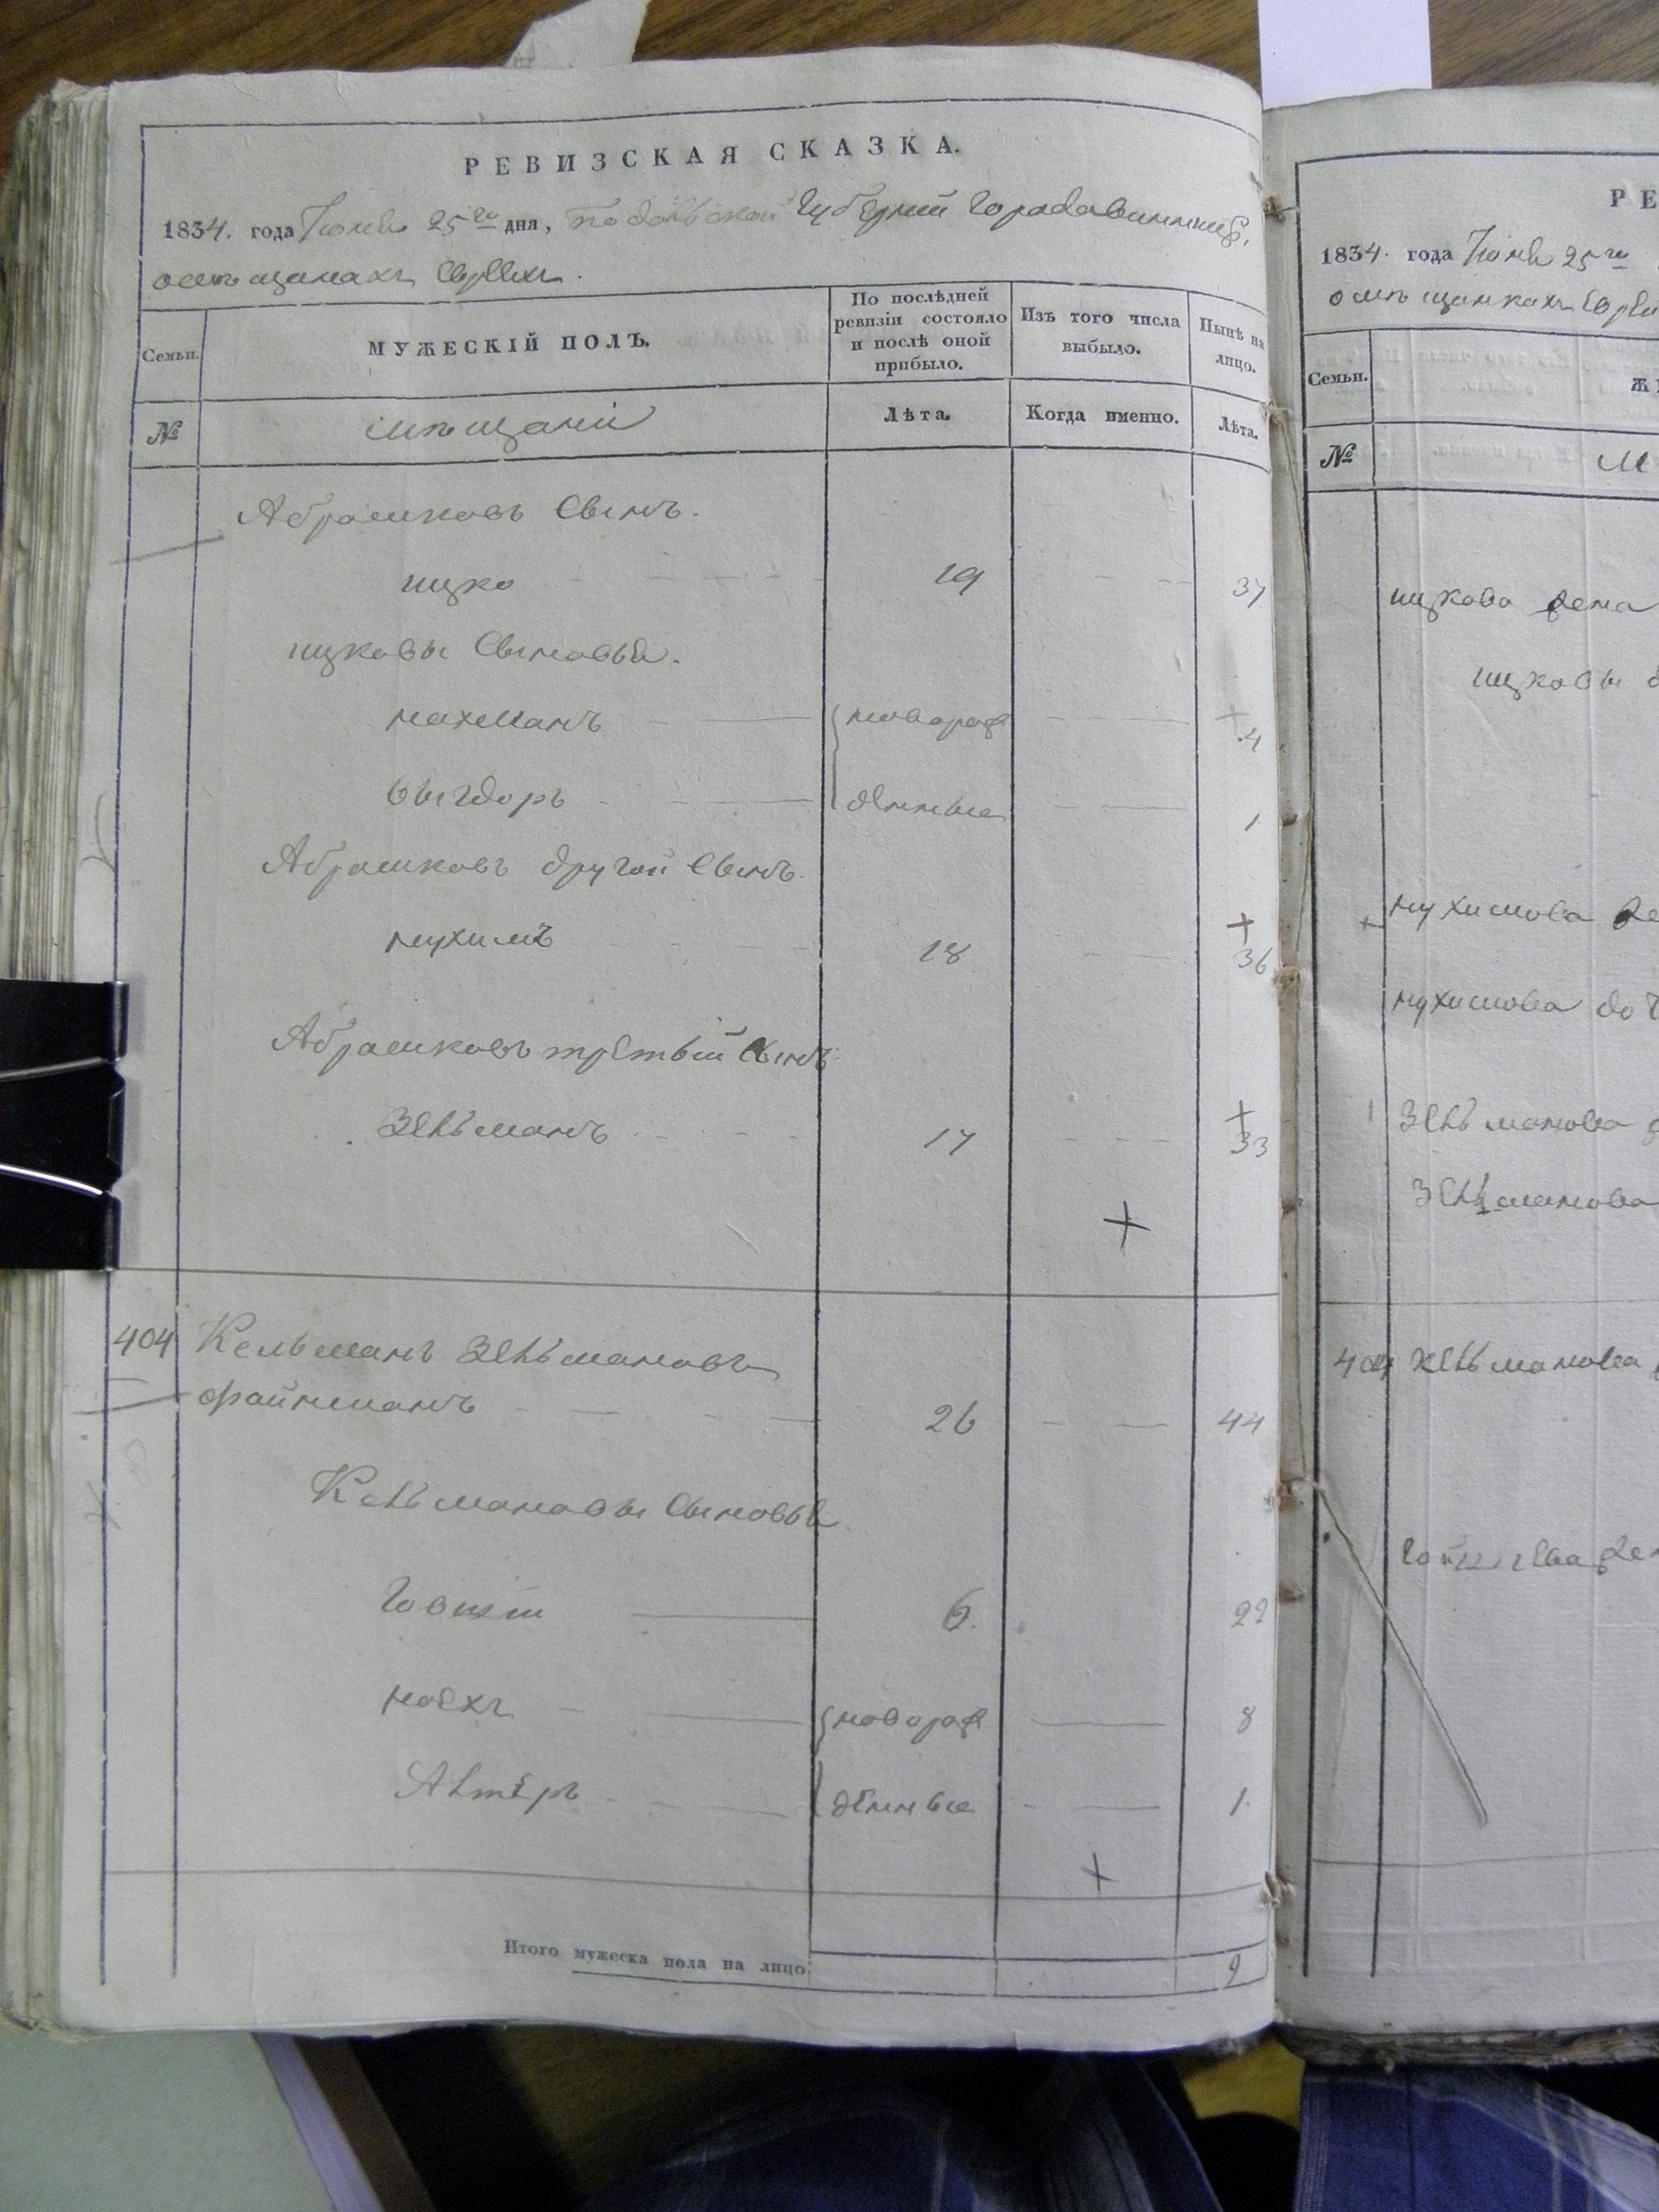 РЕВИЗСКАЯ СКАЗКА.
1834. года Іюня 25го дня, Подольской Губерніи города Винницы,
о мѣщанахъ Евреяхъ.
Семьи.
МУЖЕСКІЙ ПОЛЪ.
По послѣдней ревизіи состояло и послѣ оной прибыло.
Изъ того числа выбыло.
Нынѣ на лицо.
№
мѣщани
Лѣта.
Когда именно.
Лѣта.
Абрамковъ Сынъ.
ицко 19 37
ицковы Сыновья.
нахманъ новорож 4
Выгдоръ денные 1
Абрамковъ другой Сынъ.
нухимъ 18 36
Абрамковъ третьій Сынъ
Зельманъ 17 33
404 Кельманъ Зельмановъ
файнманъ 26 44
Кельмановы Сыновья
6 22
новорож 8
денные 1
Итого мужеска пола на лицо 9
РЕ
1834. года Іюня 25го
о мѣщанкахъ Евре
Семьи.
Ж
№
М
ицкова жена
ицковы д
нухимова же
нухимова доч
Зельманова
Зельманова
404 Кельманова